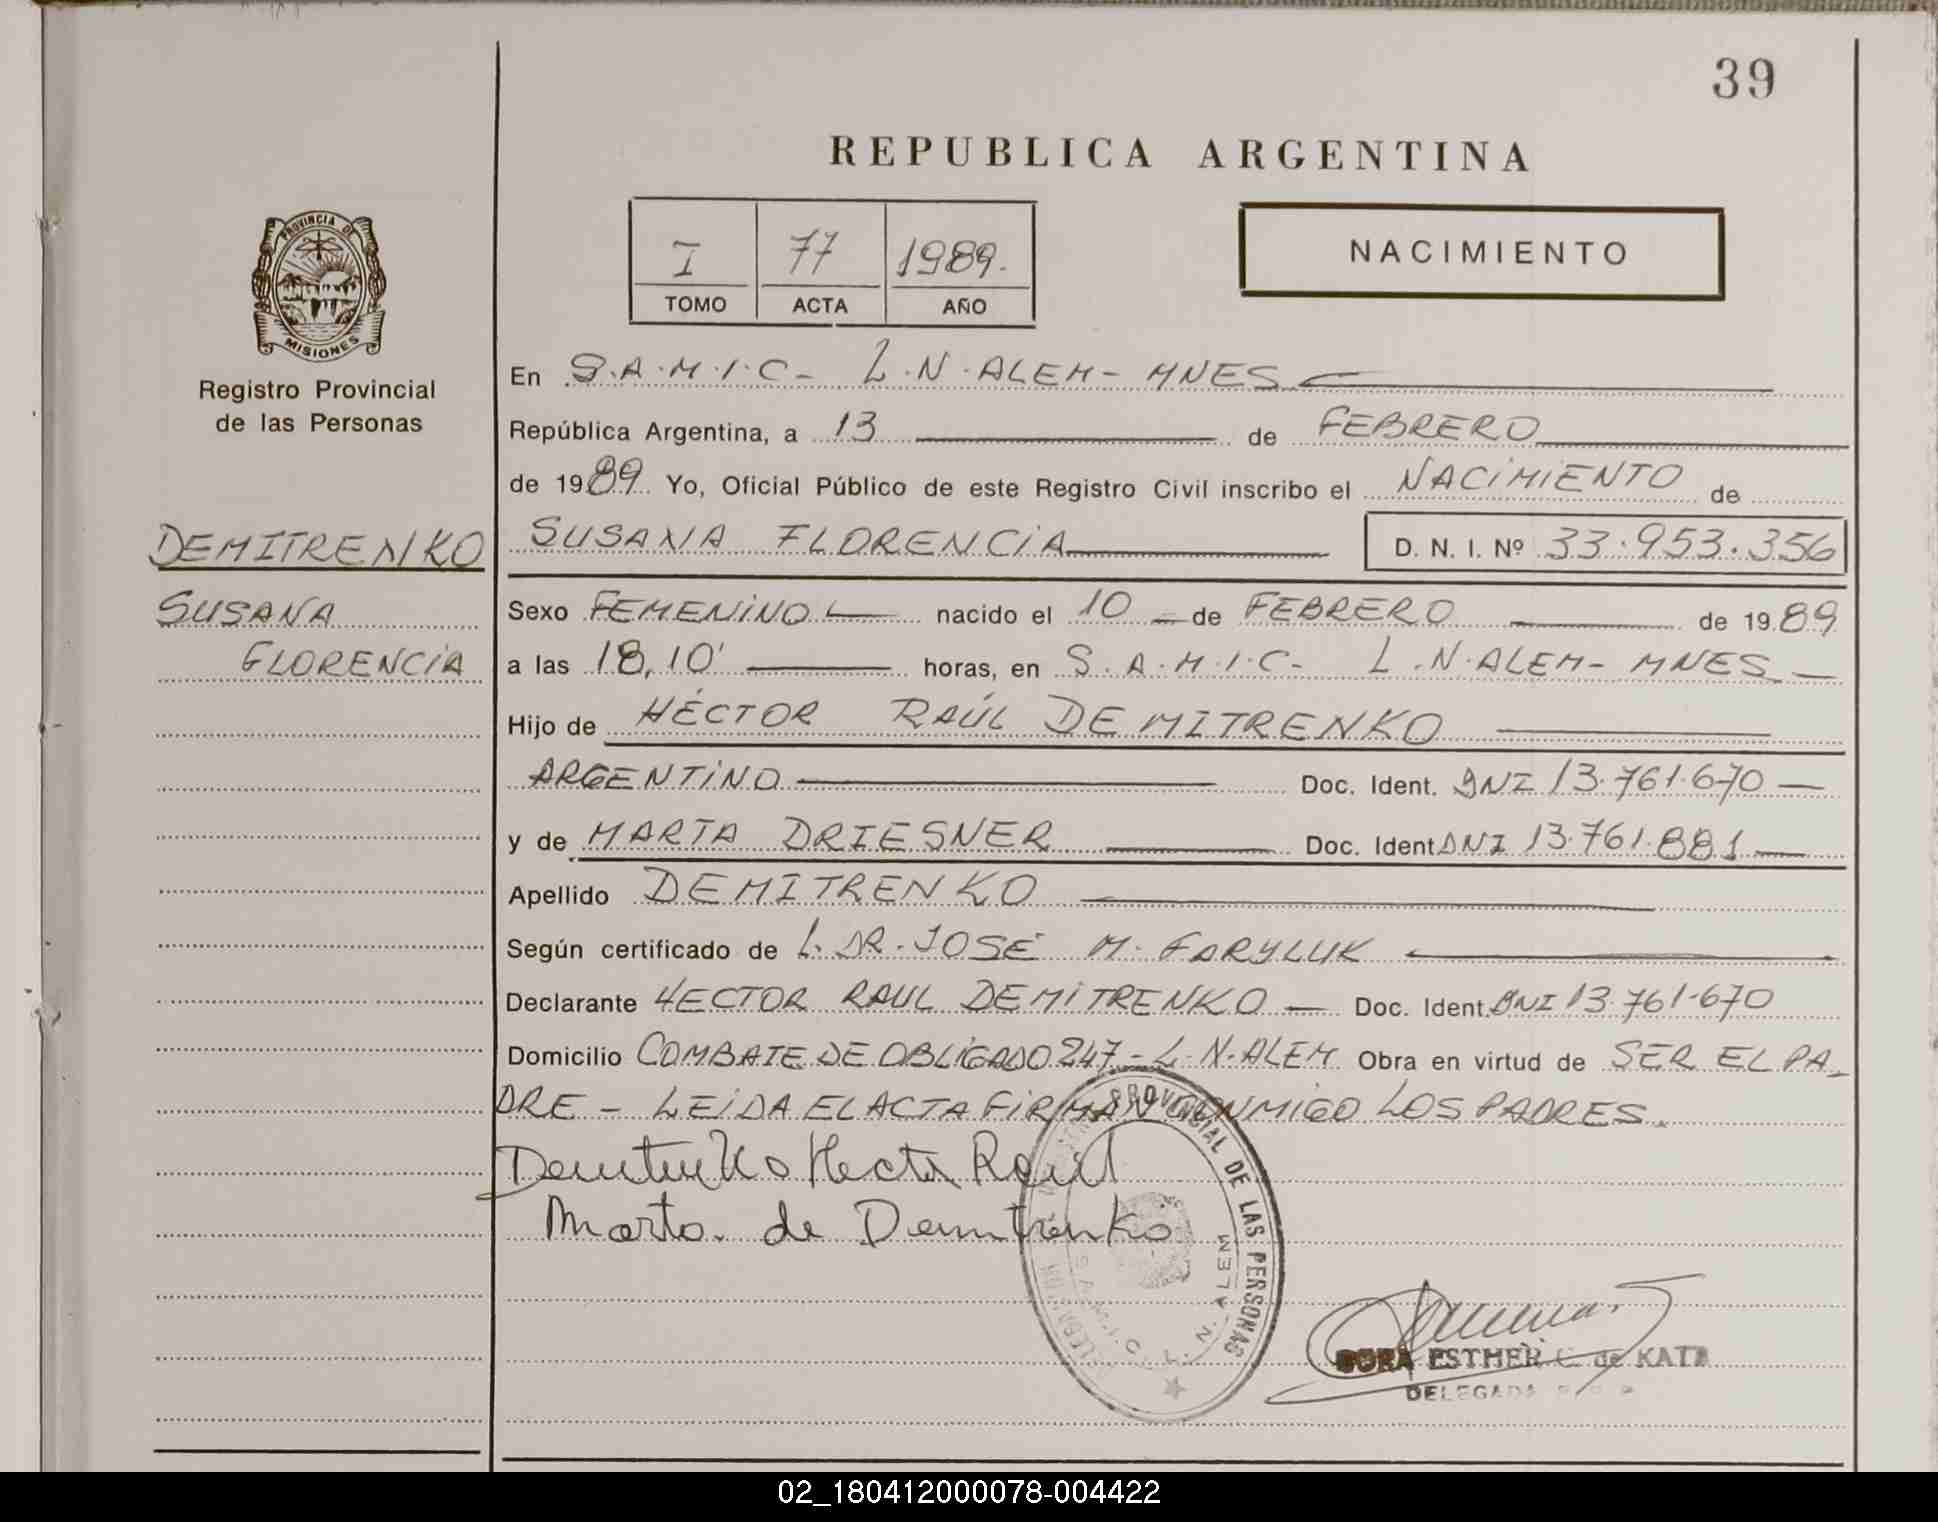 39
REPUBLICA ARGENTINA
I 77 1989.
TOMO ACTA AÑO
NACIMIENTO
PROVINCIA DE
MISIONES
Registro Provincial
de las Personas
DEMITRENKO
SUSANA
FLORENCIA
En S.A.M.I.C- L.N.ALEM- MNES
República Argentina, a 13 de FEBRERO
de 1989. Yo, Oficial Público de este Registro Civil inscribo el NACIMIENTO de
SUSANA FLORENCIA D. N. I. Nº 33.953.356
Sexo FEMENINO nacido el 10 de FEBRERO de 1989
a las 18,10' horas, en S.A.M.I.C- L.N.ALEM- MNES
Hijo de HÉCTOR RAÚL DEMITRENKO
ARGENTINO Doc. Ident. DNI 13.761.670
y de MARTA DRIESNER Doc. Ident DNI 13.761.881
Apellido DEMITRENKO
Según certificado de L. DR. JOSÉ M. FARYLUK
Declarante HECTOR RAUL DEMITRENKO Doc. Ident. DNI 13.761.670
Domicilio COMBATE DE OBLIGADO 247 - L.N.ALEM Obra en virtud de SER EL PA-
DRE - LEIDA EL ACTA FIRMAN CONMIGO LOS PADRES.
Demitrenko Hector Raúl
Marta de Demitrenko
PROVINCIAL DE LAS PERSONAS
S.A.M.I.C. L. N. ALEM
DORA ESTHER C. de KATA
DELEGADA
02_180412000078-004422